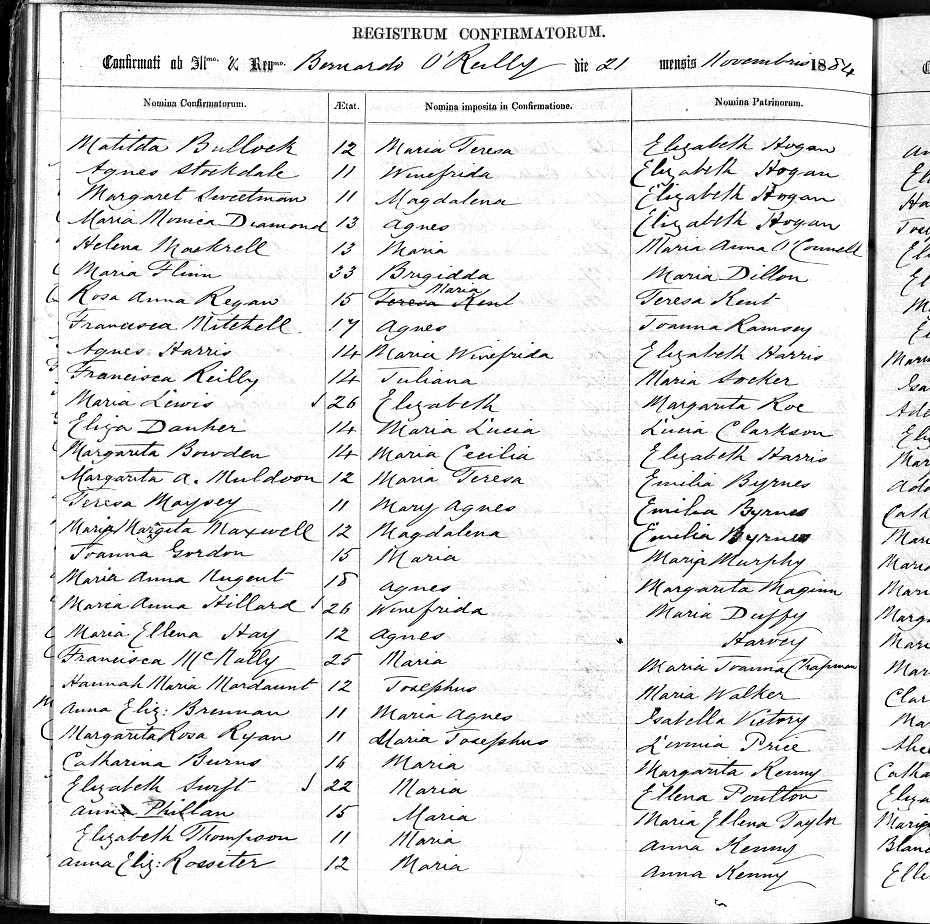 REGISTRUM CONFIRMATORUM.
Confirmati ab Illmo. & Revmo. Bernardo O'Reilly die 21 mensis Novembris 1884
Nomina Confirmatorum. Ætat. Nomina imposita in Confirmatione. Nomina Patrinorum.
Matilda Bullock 12 Maria Teresa Elizabeth Hogan
Agnes Stockdale 11 Winefrida Elizabeth Hogan
Margaret Sweetman 11 Magdalena Elizabeth Hogan
Maria Monica Diamond 13 Agnes Elizabeth Hogan
Helena Mackrell 13 Maria Maria Anna O'Connell
Maria Flinn 33 Brigidda Maria Dillon
Rosa Anna Regan 15 Teresa Kent Maria Teresa Kent
Francisca Mitchell 17 Agnes Joanna Ramsey
Agnes Harris 14 Maria Winefrida Elizabeth Harris
Francisca Reilly 14 Juliana Maria Socker
Maria Lewis 26 Elizabeth Margarita Roe
Eliza Danher 14 Maria Lucia Lucia Clarkson
Margarita Bowden 14 Maria Cecilia Elizabeth Harris
Margarita A. Muldoon 12 Maria Teresa Emilia Byrnes
Teresa Maysey 11 Mary Agnes Emilia Byrnes
Maria Margita Maxwell 12 Magdalena Emilia Byrnes
Joanna Gordon 15 Maria Maria Murphy
Maria Anna Nugent 18 Agnes Margarita Maginn
Maria Anna Hillard 26 Winefrida Maria Duffy
Maria Ellena Hay 12 Agnes Harvey
Francisca McNally 25 Maria Maria Joanna Chapman
Hannah Maria Mordaunt 12 Josephus Maria Walker
Anna Eliz: Brennan 11 Maria Agnes Isabella Victory
Margarita Rosa Ryan 11 Maria Josephus Price
Catharina Burns 16 Maria Margarita Kenny
Elizabeth Swift 22 Maria Ellena Poulton
Anna Phillan 15 Maria Maria Ellena Taylor
Elizabeth Thompson 11 Maria Anna Kenny
Anna Eliz: Rossiter 12 Maria Anna Kenny